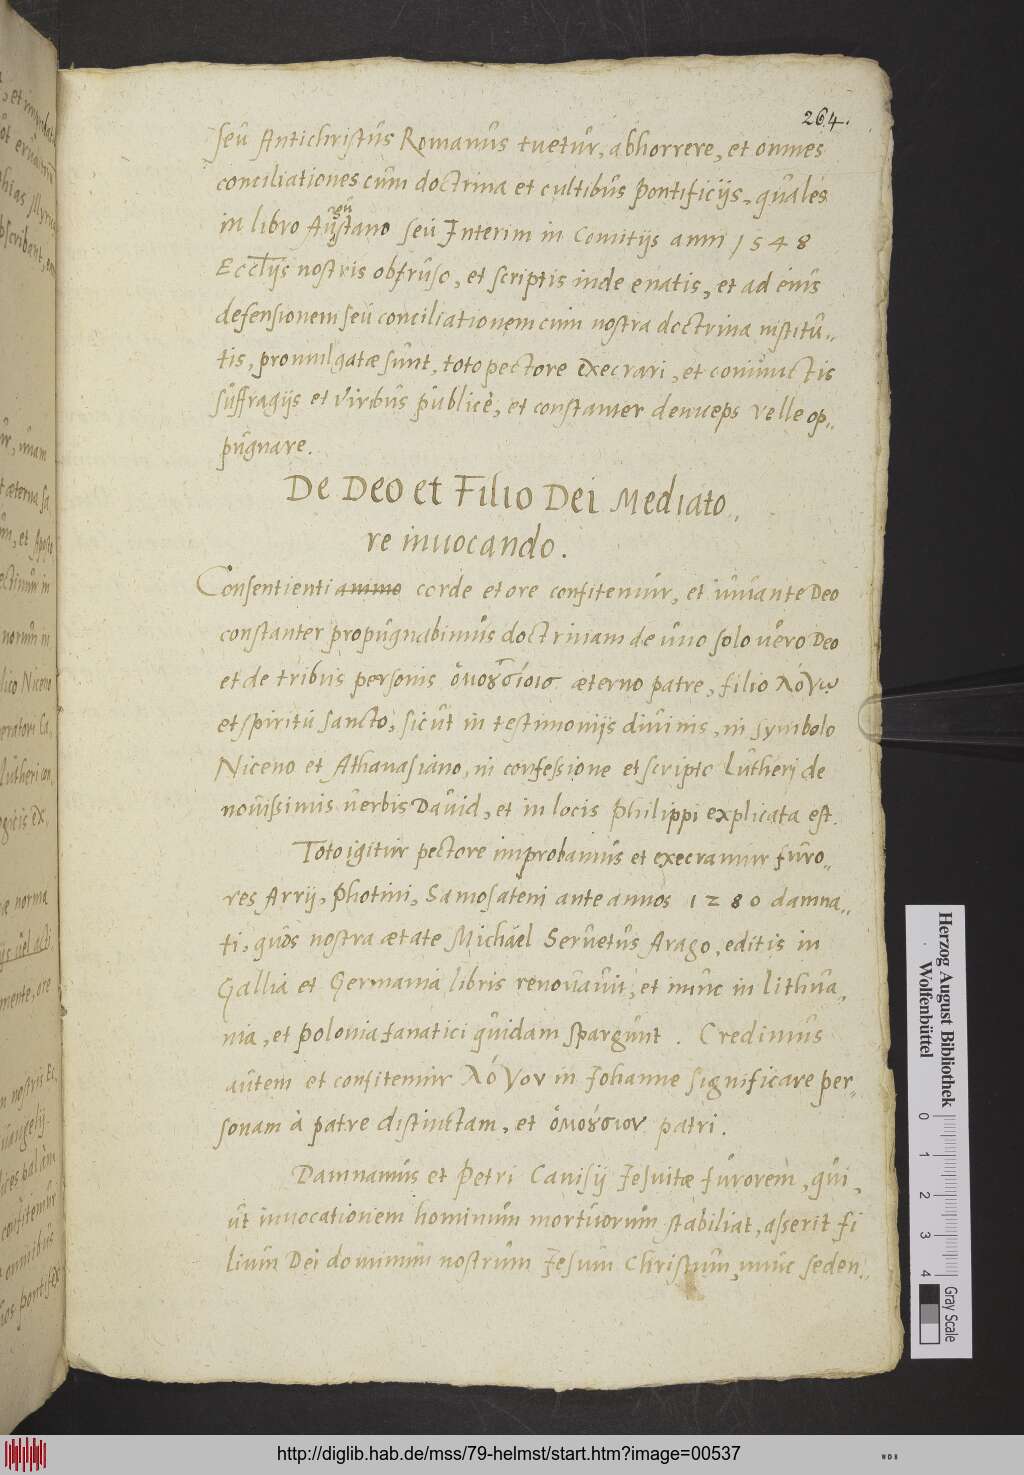 264.
seu Antichristus Romanus tuetur, abhorrere, et omnes
conciliationes cum doctrina et cultibus Pontificijs, quales
in libro Augustano seu Interim in Comitijs anni 1548
Ecclijs nostris obtruso, et scriptis inde enatis, et ad eius
defensionem seu conciliationem cum nostra doctrina institu-
tis, promulgatæ sunt, toto pectore execrari, et coniunctis
suffragijs et viribus publicè, et constanter denuceps velle op-
pugnare.
De Deo et Filio Dei Mediato
re inuocando.
Consentienti animo corde et ore confitemur, et iuuante Deo
constanter propugnabimus doctrinam de uno solo uero Deo
et de tribus personis ὁμουσίοισ æterno patre, filio λόγω
et spiritu sancto, sicut in testimonijs diuinis, in symbolo
Niceno et Athanasiano, in confessione et scripto Lutheri de
nouissimis uerbis Dauid, et in locis Philippi explicata est.
Toto igitur pectore improbamus et execramur furo-
res Arrij, Photini, Samosateni ante annos 1280 damna-
ti, quos nostra ætate Michael Seruetus Arago, editis in
Gallia et Germania libris renouauit, et nunc in Lithua-
nia, et Polonia fanatici quidam spargunt. Credimus
autem et confitemur λόγον in Johanne significare per-
sonam à patre distinctam, et ὁμούσιον patri.
Damnamus et Petri Canisij Jesuitæ furorem, qui,
ut inuocationem hominum mortuorum stabiliat, asserit fi
lium Dei dominum nostrum Jesum Christum, nunc seden-
Herzog August Bibliothek
Wolfenbüttel
0 1 2 3 4
Gray Scale
http://diglib.hab.de/mss/79-helmst/start.htm?image=00537
WDB